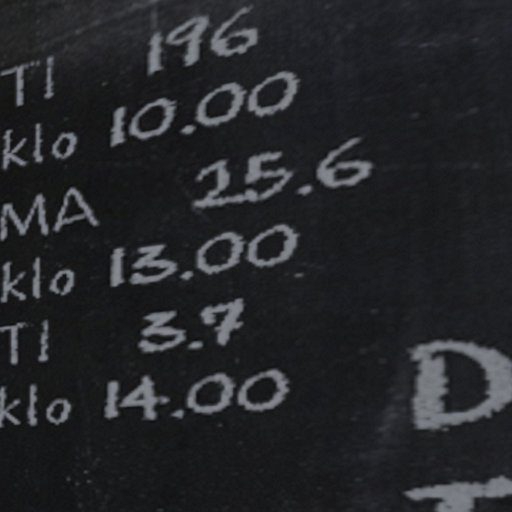 TI 196
klo 10.00
MA 25.6
klo 13.00
TI 3.7
klo 14.00
D